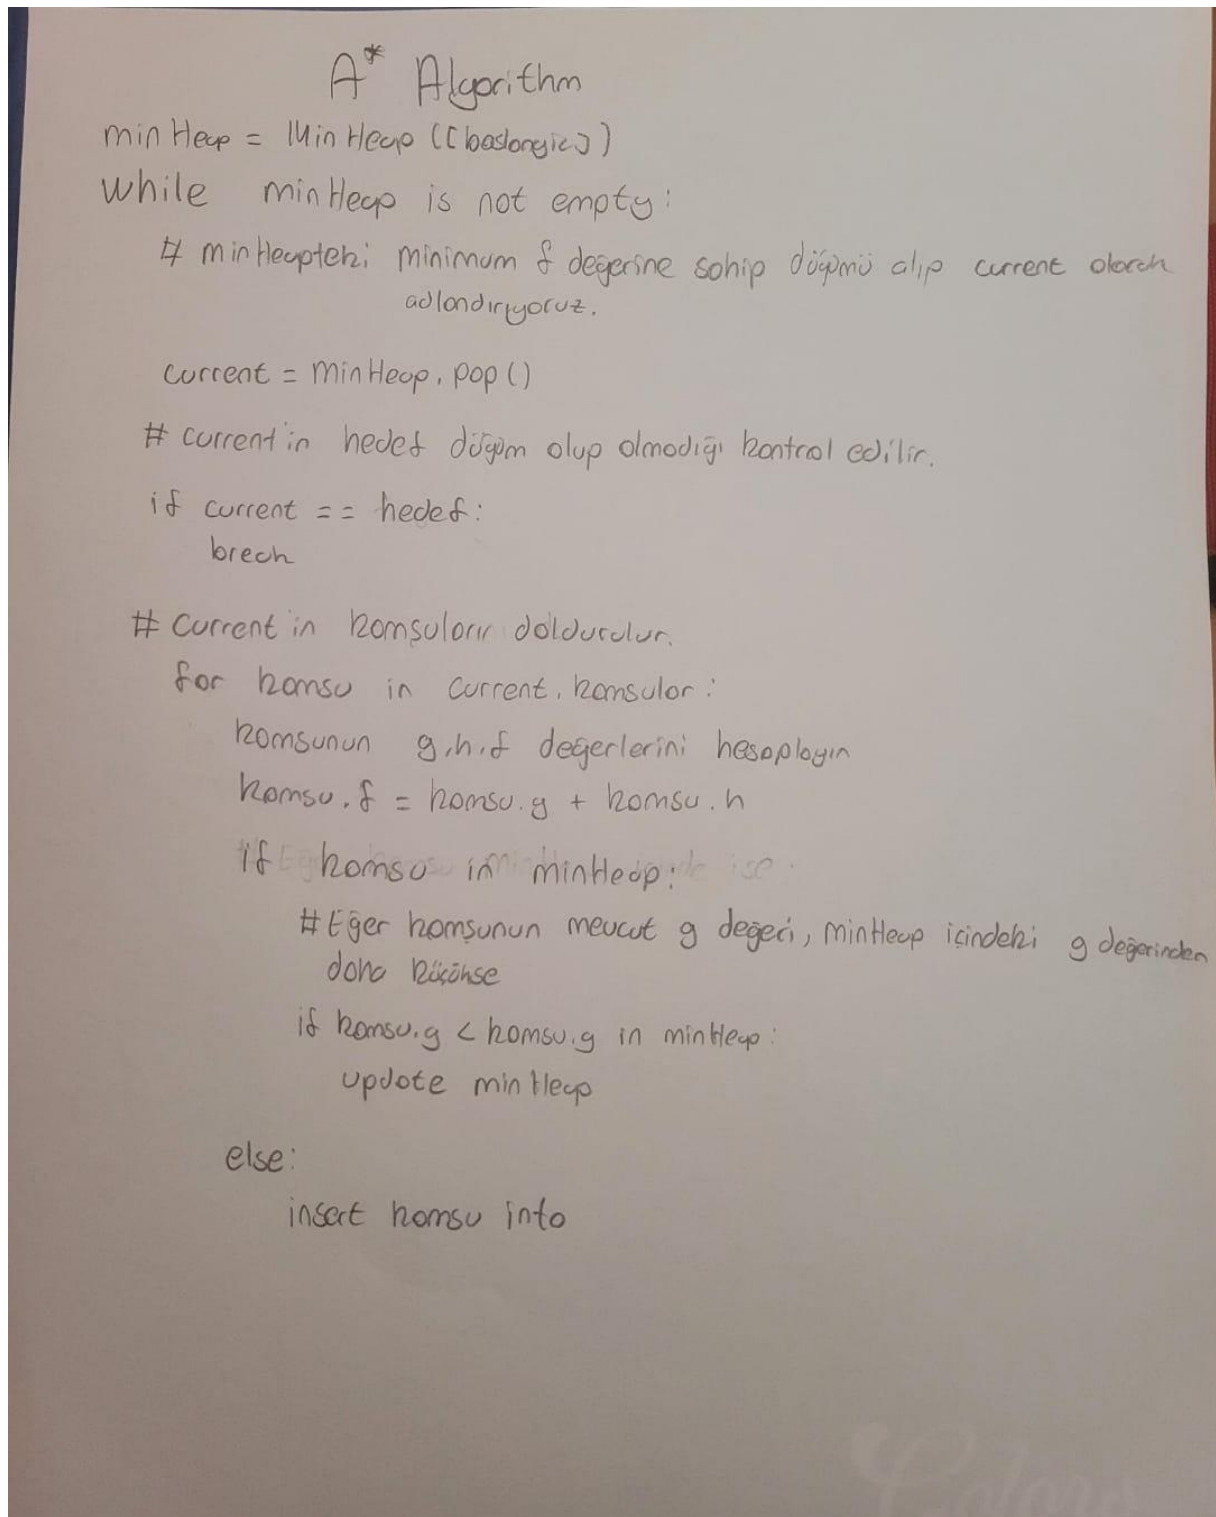 A* Algorithm
minHeap = MinHeap ([baslangic])
while minHeap is not empty:
# minHeapteki minimum f değerine sahip düğümü alıp current olarak
adlandırıyoruz.
current = minHeap.pop()
# current in hedef düğüm olup olmadığı kontrol edilir.
if current == hedef:
break
# current in komşuları doldurulur.
for komsu in current.komsular:
komsunun g,h,f değerlerini hesaplayın
komsu.f = komsu.g + komsu.h
if komsu in minHeap:
#Eğer komşunun mevcut g değeri, minHeap içindeki g değerinden
daha küçükse
if komsu.g < komsu.g in minHeap:
update minHeap
else:
insert komsu into